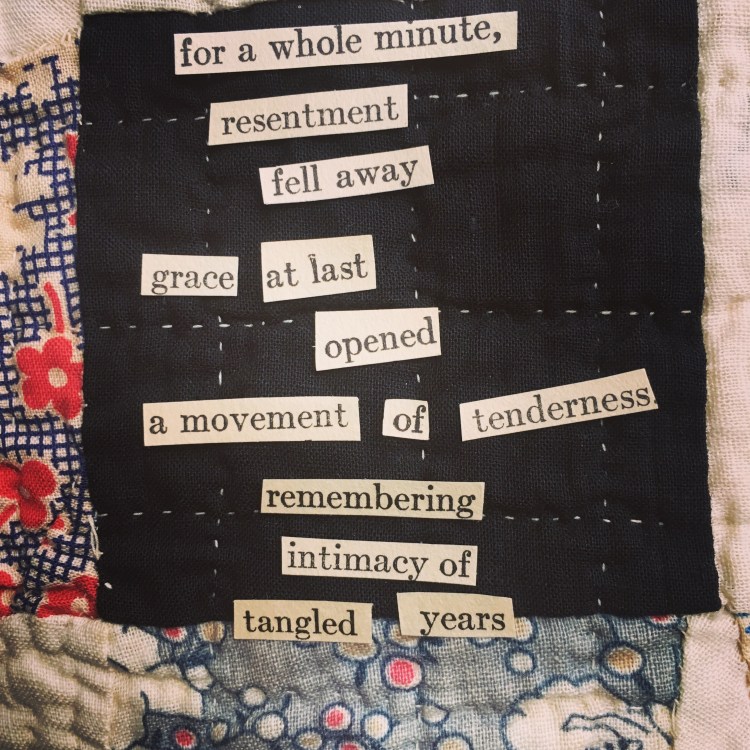 for a whole minute,
resentment
fell away
grace at last
opened
a movement of tenderness.
remembering
intimacy of
tangled years